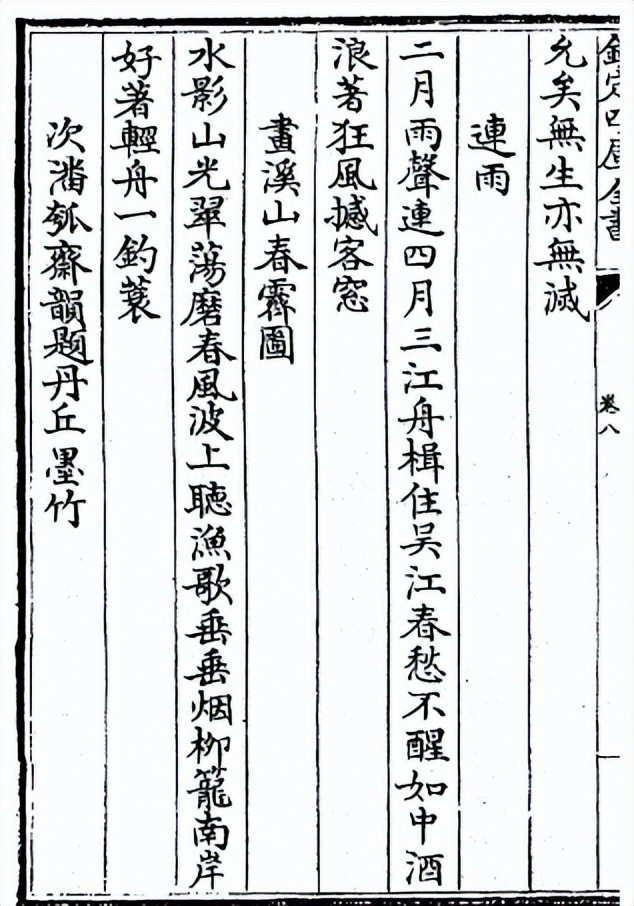 欽定四庫全書
卷八
允矣無生亦無滅
連雨
二月雨聲連四月三江舟楫住吳江春愁不醒如中酒
浪著狂風撼客窓
畫溪山春霽圖
水影山光翠蕩磨春風波上聽漁歌垂垂烟柳籠南岸
好著輕舟一釣蓑
次潘瓠齋韻題丹丘墨竹